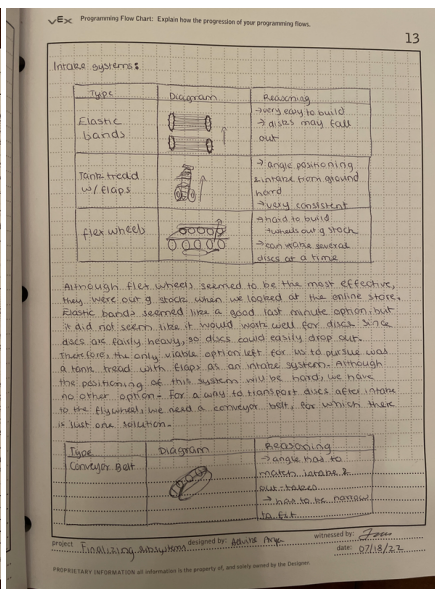 VEX Programming Flow Chart: Explain how the progression of your programming flows.
13
Intake systems:
Type Diagram Reasoning
Elastic bands
→very easy to build
→ discs may fall out
Tank tread w/ flaps
→ angle positioning & intake from ground hard
→ very consistent
flex wheels
→hard to build
→wheels out of stock
→can intake several discs at a time
Although flex wheels seemed to be the most effective,
they were out of stock when we looked at the online store.
Elastic bands seemed like a good last minute option, but
it did not seem like it would work well for discs since
discs are fairly heavy, so discs could easily drop out.
Therefore, the only viable option left for us to pursue was
a tank tread with flaps as an intake system. Although
the positioning of this system will be hard, we have
no other option. For a way to transport discs after intake
to the flywheel, we need a conveyor belt, for which there
is just one solution.
Type Diagram Reasoning
Conveyor Belt
→ angle has to
match intake &
out-takes
→ has to be narrow
to fit
project Finalizing subsystem designed by: witnessed by:
date: 07/18/22
PROPRIETARY INFORMATION all information is the property of, and solely owned by the Designer.